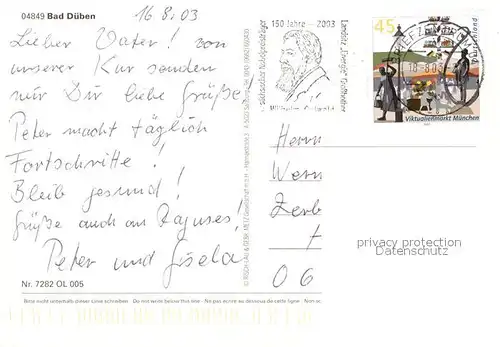 04849 Bad Düben
16.8.03
Lieber Vater! Von
unserer Kur senden
wir Dir liebe Grüße!
Peter macht täglich
Fortschritte!
Bleib gesund!
Grüße auch an Raguses!
Peter und Gisela
Nr. 7282 OL 005
Bitte nicht unterhalb dieser Linie schreiben. Do not write below this line - Ne pas écrire au dessous de cette ligne - Non
150 Jahre - 2003
Wilhelm Ostwald
45
Deutschland
Viktualienmarkt München
BRIEFZENTRUM
18.8.03
Herrn
Wern
Zerb
t
06
privacy protection
Datenschutz